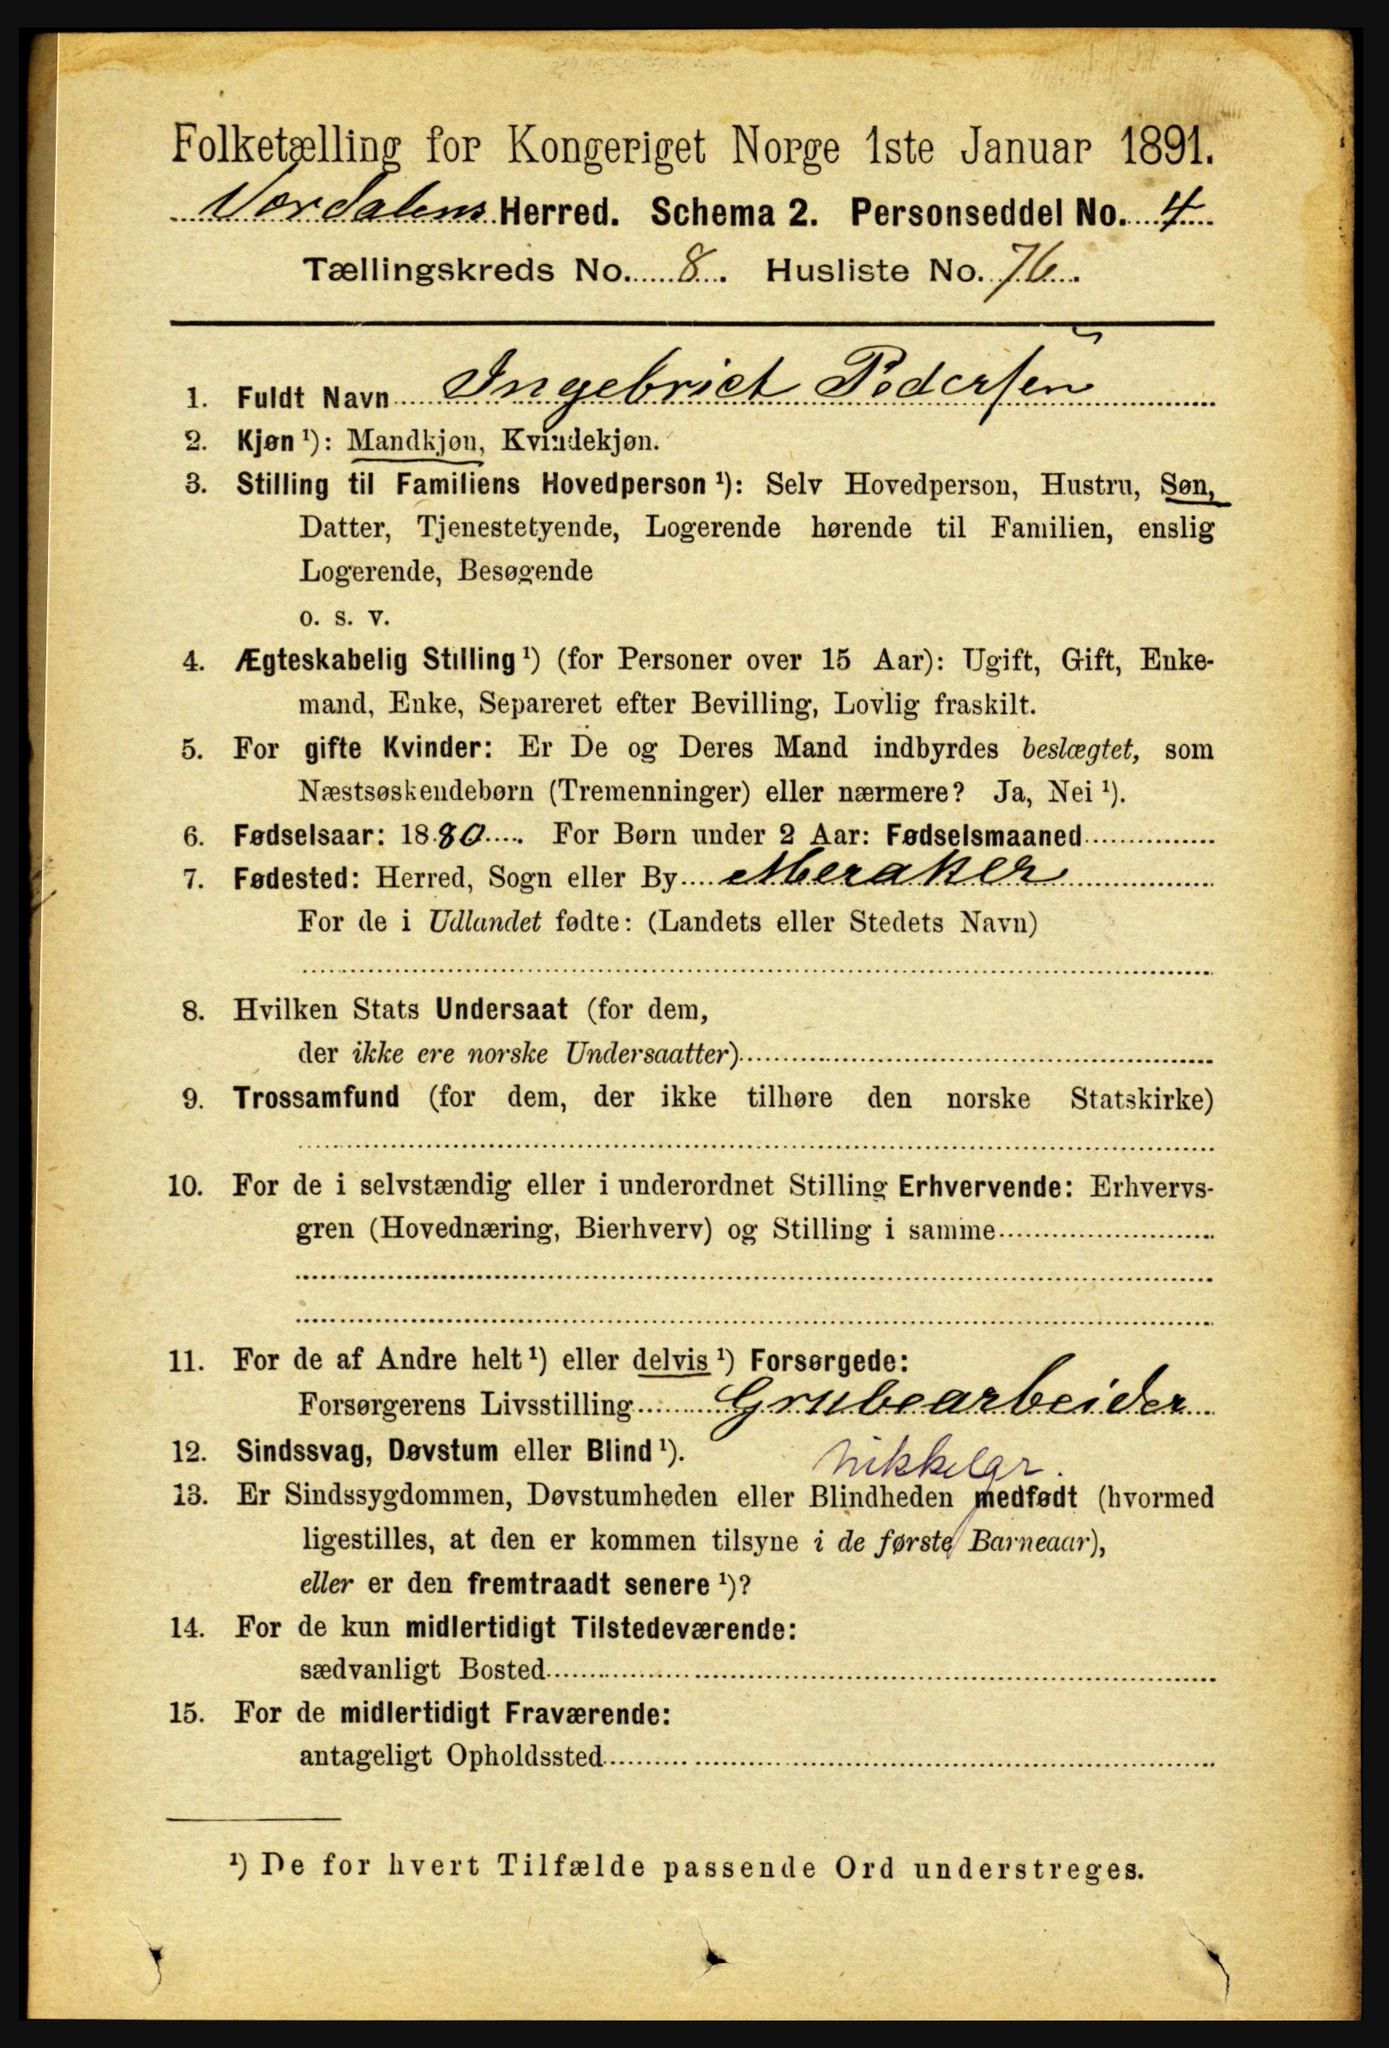 Folketælling for Kongeriget Norge 1ste Januar 1891.
Værdalens Herred. Schema 2. Personseddel No. 4
Tællingskreds No. 8. Husliste No. 76.
1. Fuldt Navn Ingebrict Pedersen
2. Kjøn ¹): Mandkjøn, Kvindekjøn.
3. Stilling til Familiens Hovedperson ¹): Selv Hovedperson, Hustru, Søn,
Datter, Tjenestetyende, Logerende hørende til Familien, enslig
Logerende, Besøgende
o. s. v.
4. Ægteskabelig Stilling ¹) (for Personer over 15 Aar): Ugift, Gift, Enke-
mand, Enke, Separeret efter Bevilling, Lovlig fraskilt.
5. For gifte Kvinder: Er De og Deres Mand indbyrdes beslægtet, som
Næstsøskendebørn (Tremenninger) eller nærmere? Ja, Nei ¹).
6. Fødselsaar: 1880. For Børn under 2 Aar: Fødselsmaaned
7. Fødested: Herred, Sogn eller By Meraker
For de i Udlandet fødte: (Landets eller Stedets Navn)
8. Hvilken Stats Undersaat (for dem,
der ikke ere norske Undersaatter)
9. Trossamfund (for dem, der ikke tilhøre den norske Statskirke)
10. For de i selvstændig eller i underordnet Stilling Erhvervende: Erhvervs-
gren (Hovednæring, Bierhverv) og Stilling i samme
11. For de af Andre helt ¹) eller delvis ¹) Forsørgede:
Forsørgerens Livsstilling Grubearbeider
12. Sindssvag, Døvstum eller Blind ¹). Nikkelgr.
13. Er Sindssygdommen, Døvstumheden eller Blindheden medfødt (hvormed
ligestilles, at den er kommen tilsyne i de første Barneaar),
eller er den fremtraadt senere ¹)?
14. For de kun midlertidigt Tilstedeværende:
sædvanligt Bosted
15. For de midlertidigt Fraværende:
antageligt Opholdssted
¹) De for hvert Tilfælde passende Ord understreges.